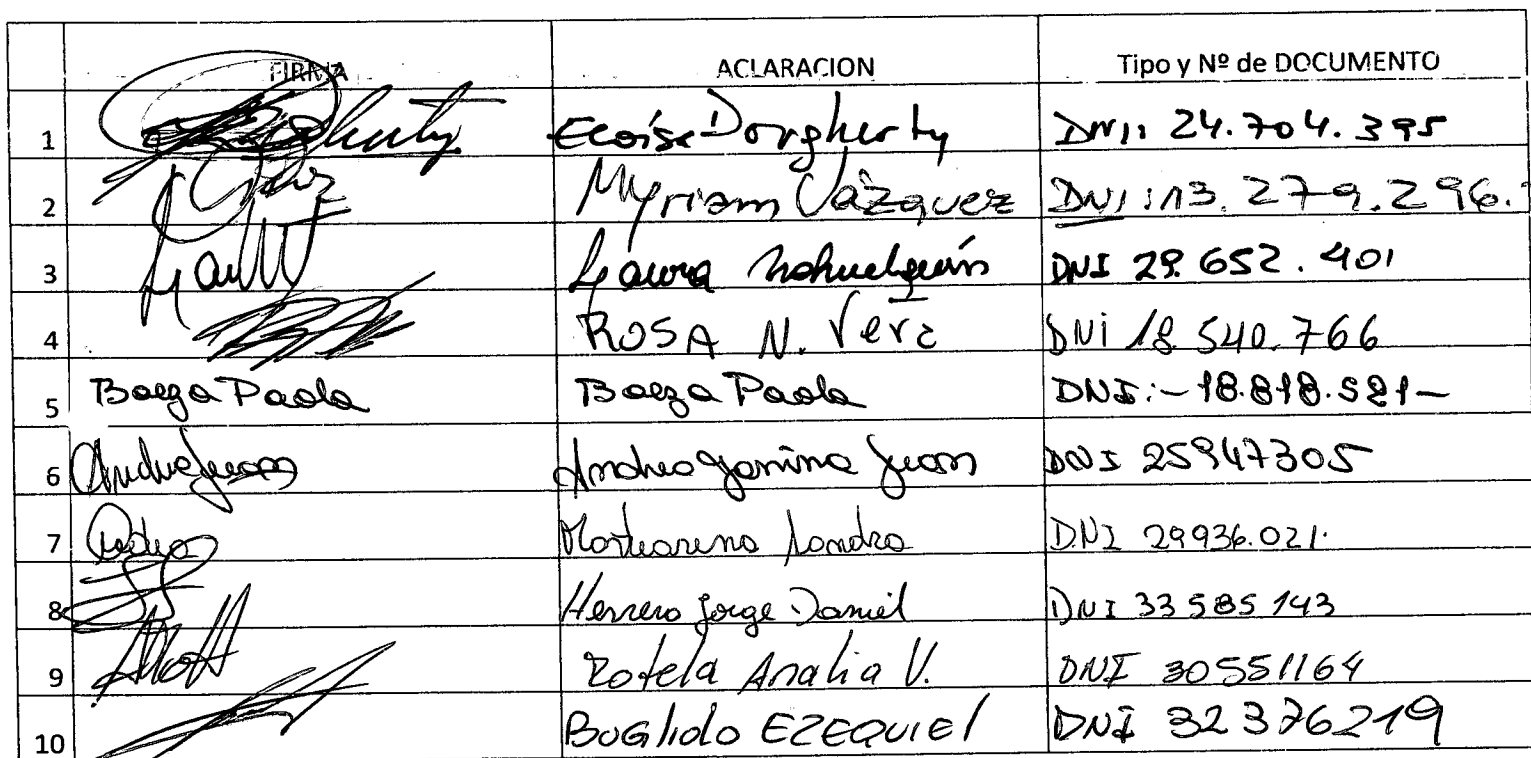 FIRMA ACLARACION Tipo y Nº de DOCUMENTO
1 Eloísa Dougherty DNI: 24.704.395
2 Myriam Vázquez DNI: 13.279.296.
3 Laura Nahuelquín DNI 29.652.401
4 ROSA N. Vera DNi 18.540.766
5 Baeza Paola Baeza Paola DNI:-18.818.521-
6 Andrea Juan Andrea Janina Juan DNI 25947305
7 Sandra DNI 29936.021.
8 Herrero Jorge Daniel DNI 33585143
9 Rotela Analia V. DNI 30551164
10 BOGlidlo EZEQUIEl DNI 32376219